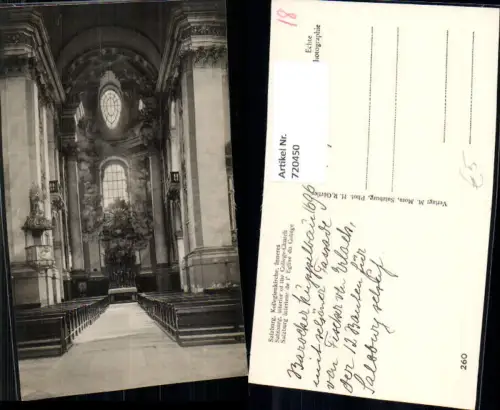 18
Echte
Photographie
Artikel Nr.
720450
£5
Verlag: M. Moss, Salzburg, Phot. H. R.
Salzburg, Kollegienkirche, Inneres
Salzburg, interior of the College-Church
Salzburg intérieur de l' Eglise du College
Barocker Kuppelbau 1696
mit schöner Fassade
von Fischer von Erlach,
der 12 Bauten für
Salzburg schuf.
260